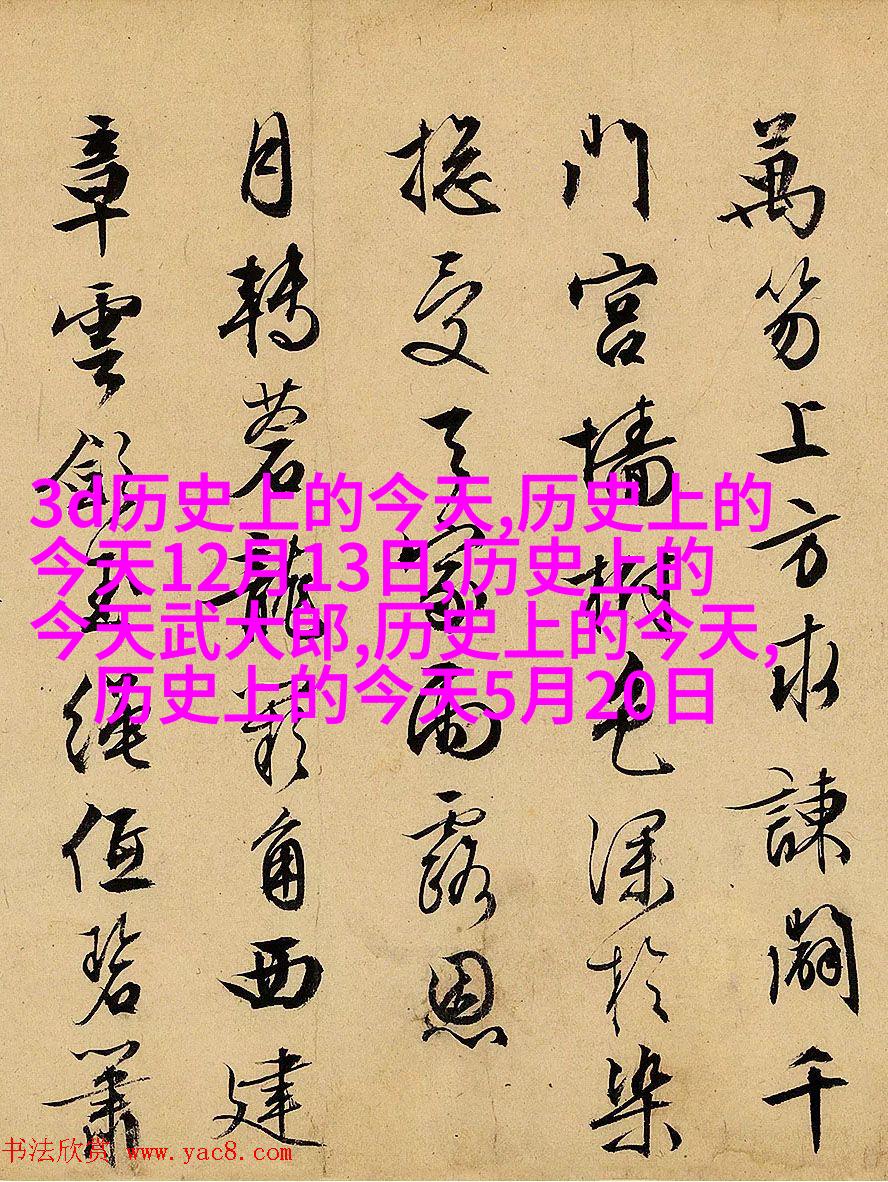 萬笏上方求諫闢千
門宮墻樹色深於染
總受天家雨露恩
月轉蒼龍闕角西建
章雲斂玉繩低碧簫
3d历史上的今天,历史上的
今天12月13日,历史上的
今天武大郎,历史上的今天,
历史上的今天5月20日
书法欣赏 www.yac8.com